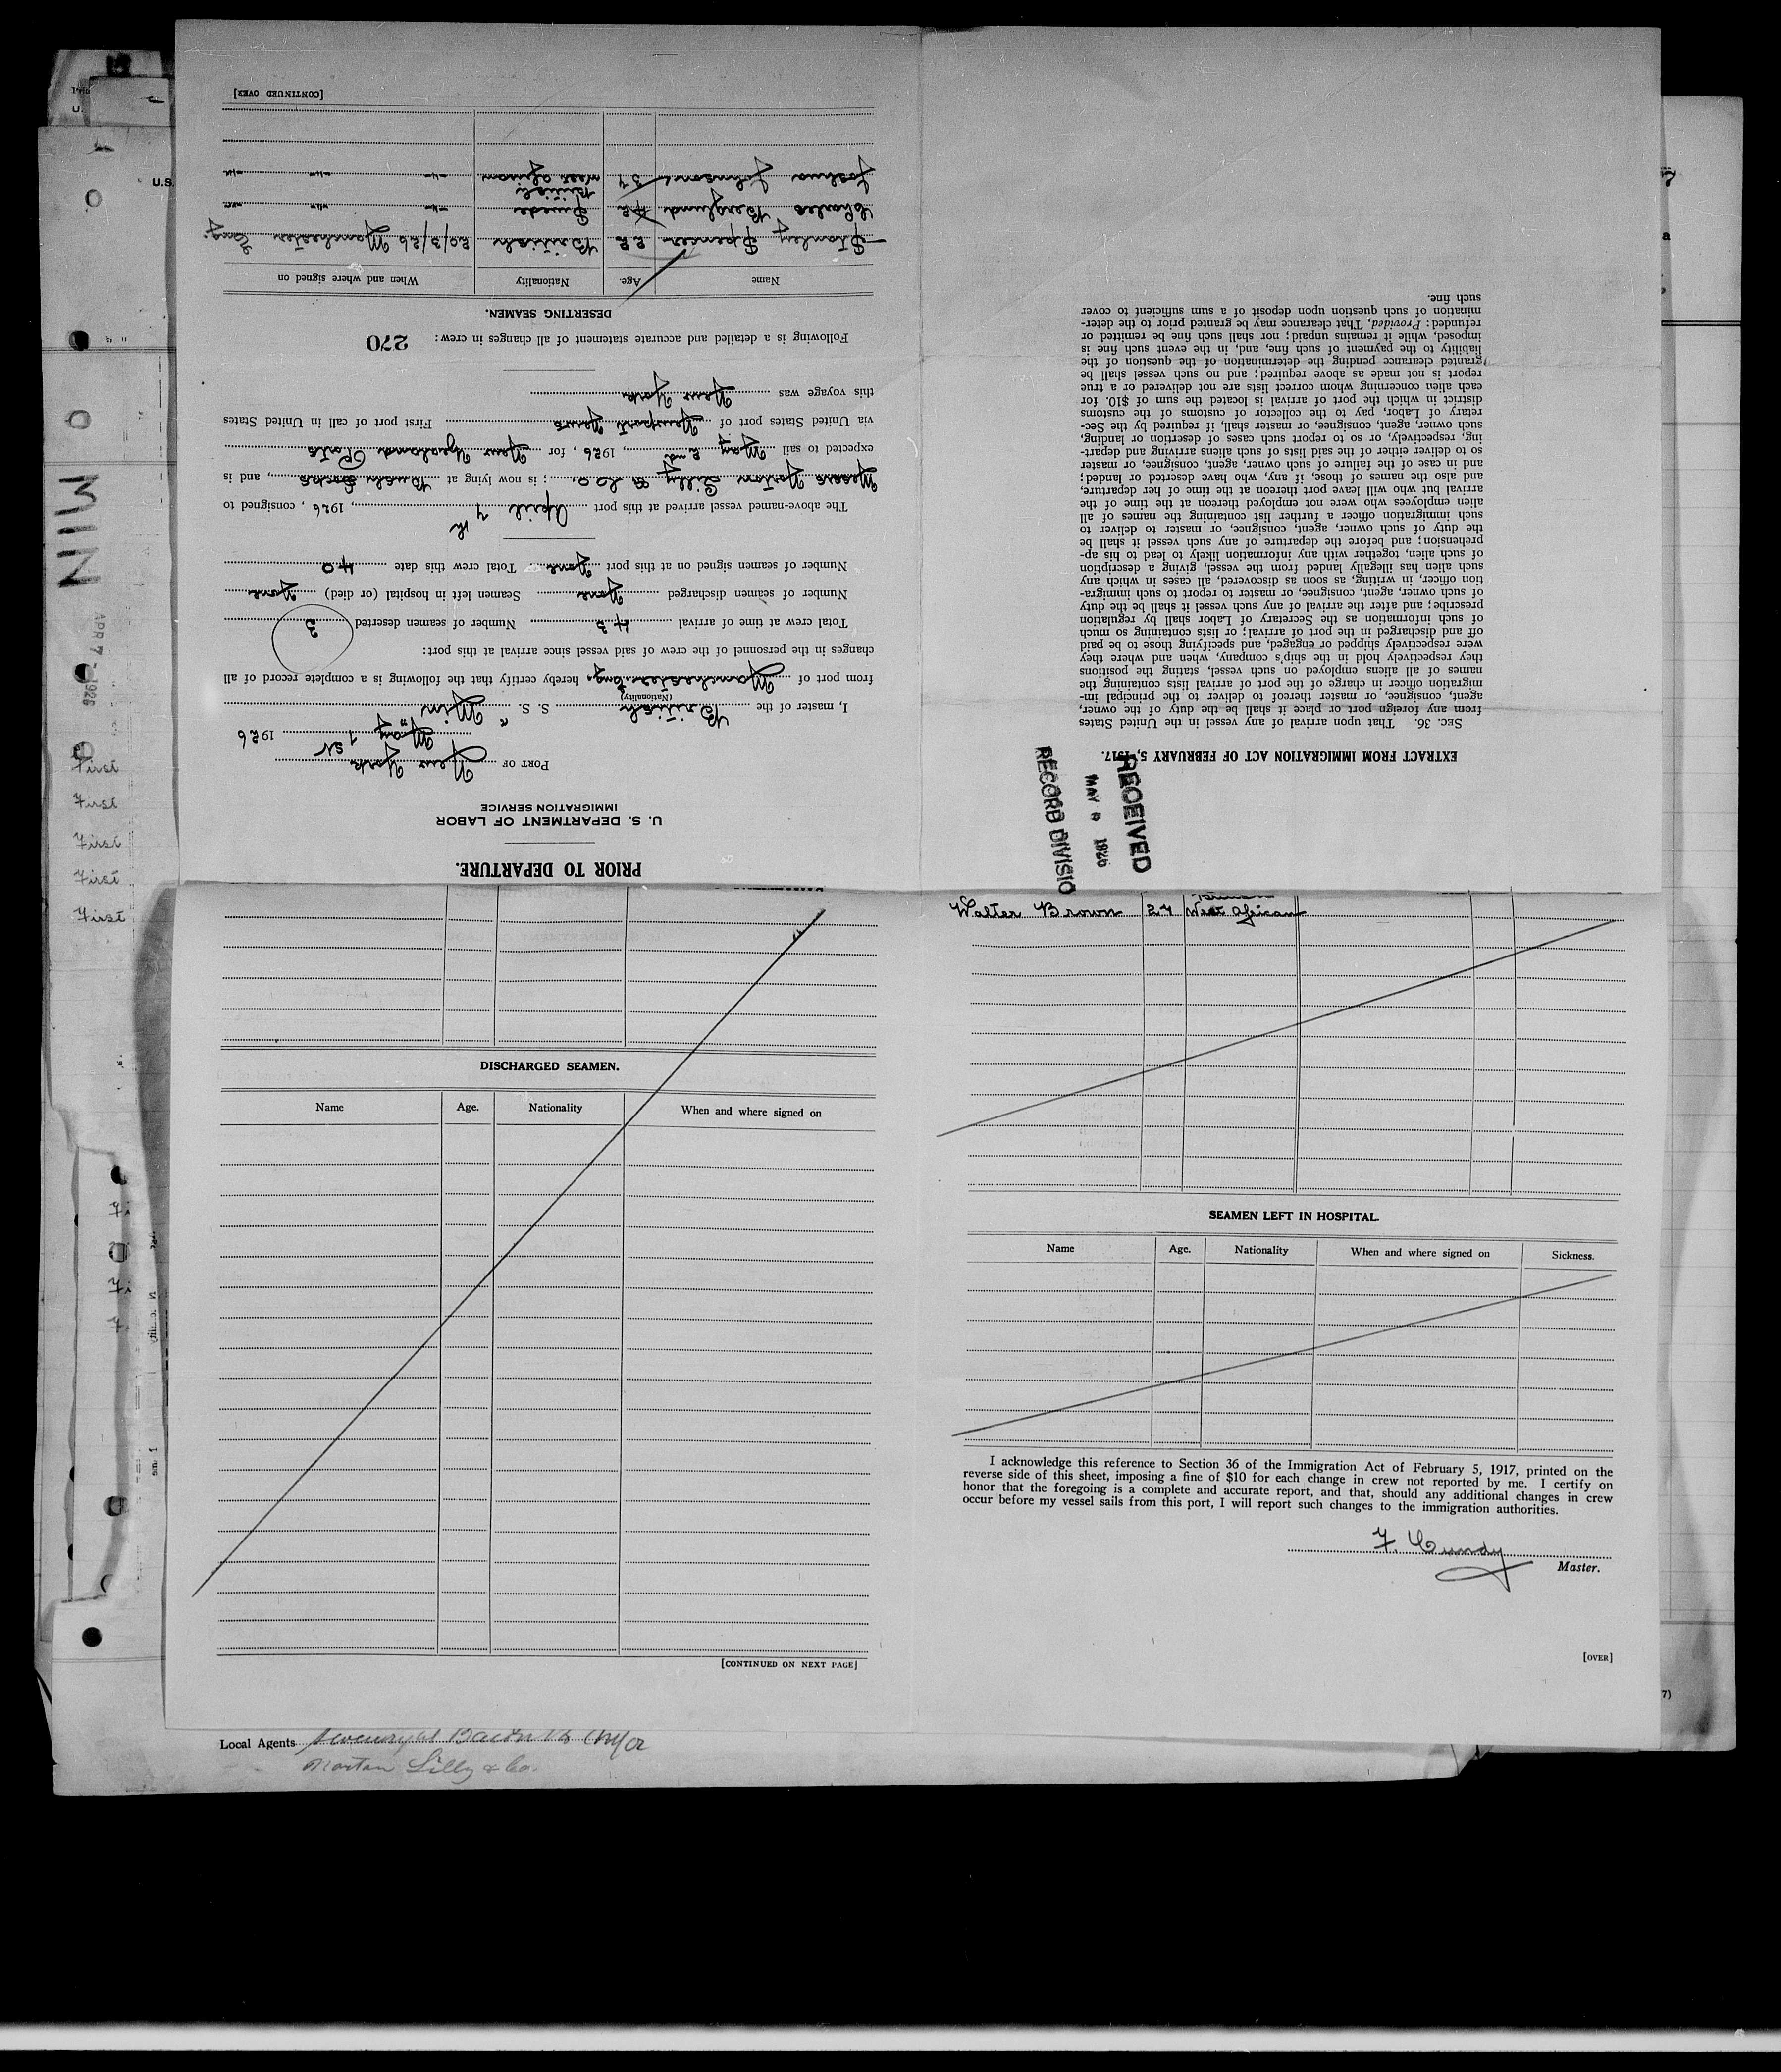 PRIOR TO DEPARTURE.
U. S. DEPARTMENT OF LABOR
IMMIGRATION SERVICE
PORT OF New York
May 1st 1926
I, master of the British S. S. "Min"
(Nationality)
from port of Manchester, Eng, hereby certify that the following is a complete record of all
changes in the personnel of the crew of said vessel since arrival at this port:
Total crew at time of arrival 43 Number of seamen deserted 3
Number of seamen discharged None Seamen left in hospital (or died) None
Number of seamen signed on at this port None Total crew this date 40
The above-named vessel arrived at this port April 7th, 1926, consigned to
Messrs Norton Lilly & Co.; is now lying at Bush Docks, and is
expected to sail May 2nd, 1926, for New Zealand Ports
via United States port of Newport News First port of call in United States
this voyage was New York
Following is a detailed and accurate statement of all changes in crew: 270
DESERTING SEAMEN.
Name Age. Nationality When and where signed on
Stanley Spencer 22 British 20/3/26 Manchester Eng.
Charles Berglund 42 Swede -"- -"- -"-
Joshua Johnson 37 British West African -"- -"- -"-
[CONTINUED OVER]
EXTRACT FROM IMMIGRATION ACT OF FEBRUARY 5, 1917.
SEC. 36. That upon arrival of any vessel in the United States
from any foreign port or place it shall be the duty of the owner,
agent, consignee, or master thereof to deliver to the principal im-
migration officer in charge of the port of arrival lists containing the
names of all aliens employed on such vessel, stating the positions
they respectively hold in the ship's company, when and where they
were respectively shipped or engaged, and specifying those to be paid
off and discharged in the port of arrival; or lists containing so much
of such information as the Secretary of Labor shall by regulation
prescribe; and after the arrival of any such vessel it shall be the duty
of such owner, agent, consignee, or master to report to such immigra-
tion officer, in writing, as soon as discovered, all cases in which any
such alien has illegally landed from the vessel, giving a description
of such alien, together with any information likely to lead to his ap-
prehension; and before the departure of any such vessel it shall be
the duty of such owner, agent, consignee, or master to deliver to
such immigration officer a further list containing the names of all
alien employees who were not employed thereon at the time of the
arrival but who will leave port thereon at the time of her departure,
and also the names of those, if any, who have deserted or landed;
and in case of the failure of such owner, agent, consignee, or master
so to deliver either of the said lists of such aliens arriving and depart-
ing, respectively, or so to report such cases of desertion or landing,
such owner, agent, consignee, or master shall, if required by the Sec-
retary of Labor, pay to the collector of customs of the customs
district in which the port of arrival is located the sum of $10. for
each alien concerning whom correct lists are not delivered or a true
report is not made as above required; and no such vessel shall be
granted clearance pending the determination of the question of the
liability to the payment of such fine, and, in the event such fine is
imposed, while it remains unpaid; nor shall such fine be remitted or
refunded: Provided, That clearance may be granted prior to the deter-
mination of such question upon deposit of a sum sufficient to cover
such fine.
RECEIVED
MAY 1926
RECORD DIVISIO
MIN
APR 7 - 1926
U.S.
First
First
First
First
First
Walter Brown 27 West African
DISCHARGED SEAMEN.
Name Age. Nationality When and where signed on
[CONTINUED ON NEXT PAGE]
SEAMEN LEFT IN HOSPITAL.
Name Age. Nationality When and where signed on Sickness.
I acknowledge this reference to Section 36 of the Immigration Act of February 5, 1917, printed on the
reverse side of this sheet, imposing a fine of $10 for each change in crew not reported by me. I certify on
honor that the foregoing is a complete and accurate report, and that, should any additional changes in crew
occur before my vessel sails from this port, I will report such changes to the immigration authorities.
F. Cundy
Master.
[OVER]
Local Agents
Norton Lilly & Co.